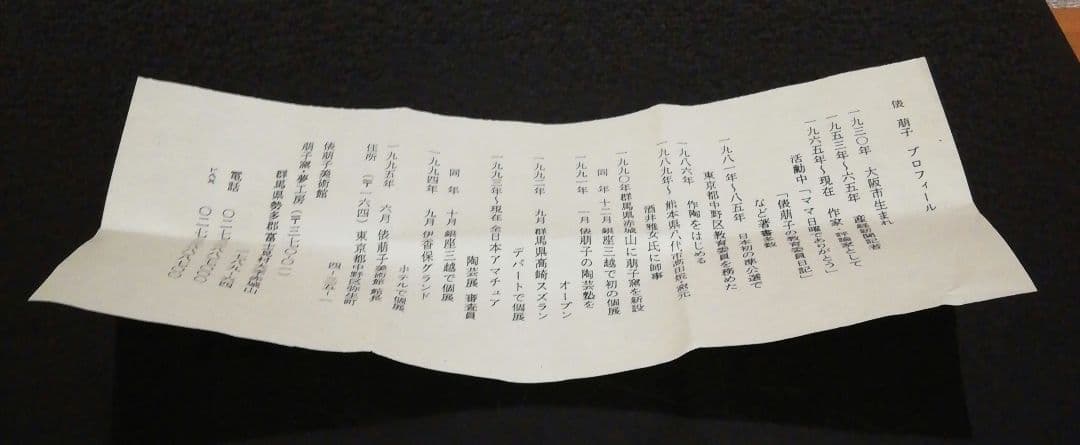 俵 萠子 プロフィール
一九三〇年 大阪市生まれ
一九五三年〜六五年 産経新聞記者
一九六五年〜現在 作家、評論家として
活動中「ママ日曜でありがとう」
「俵萠子の教育委員日記」
など著書多数
一九八一年〜八五年 日本初の準公選で
東京都中野区教育委員を務めた
一九八六年 作陶をはじめる
一九八九年〜 熊本県八代市高田焼窯元
酒井雅女氏に師事
一九九〇年群馬県赤城山に萠子窯を新設
同 年 十二月 銀座三越で初の個展
一九九一年 一月 俵萠子の陶芸塾を
オープン
一九九二年 九月 群馬県高崎スズラン
デパートで個展
一九九三年〜現在 全日本アマチュア
陶芸展 審査員
同 年 十月 銀座三越で個展
一九九四年 九月 伊香保グランド
ホテルで個展
一九九五年 六月 俵萠子美術館 館長
住所 (〒一六四) 東京都中野区弥生町
俵萠子美術館
萠子窯・夢工房
群馬県勢多郡富士見村大字赤城山
電話
FAX